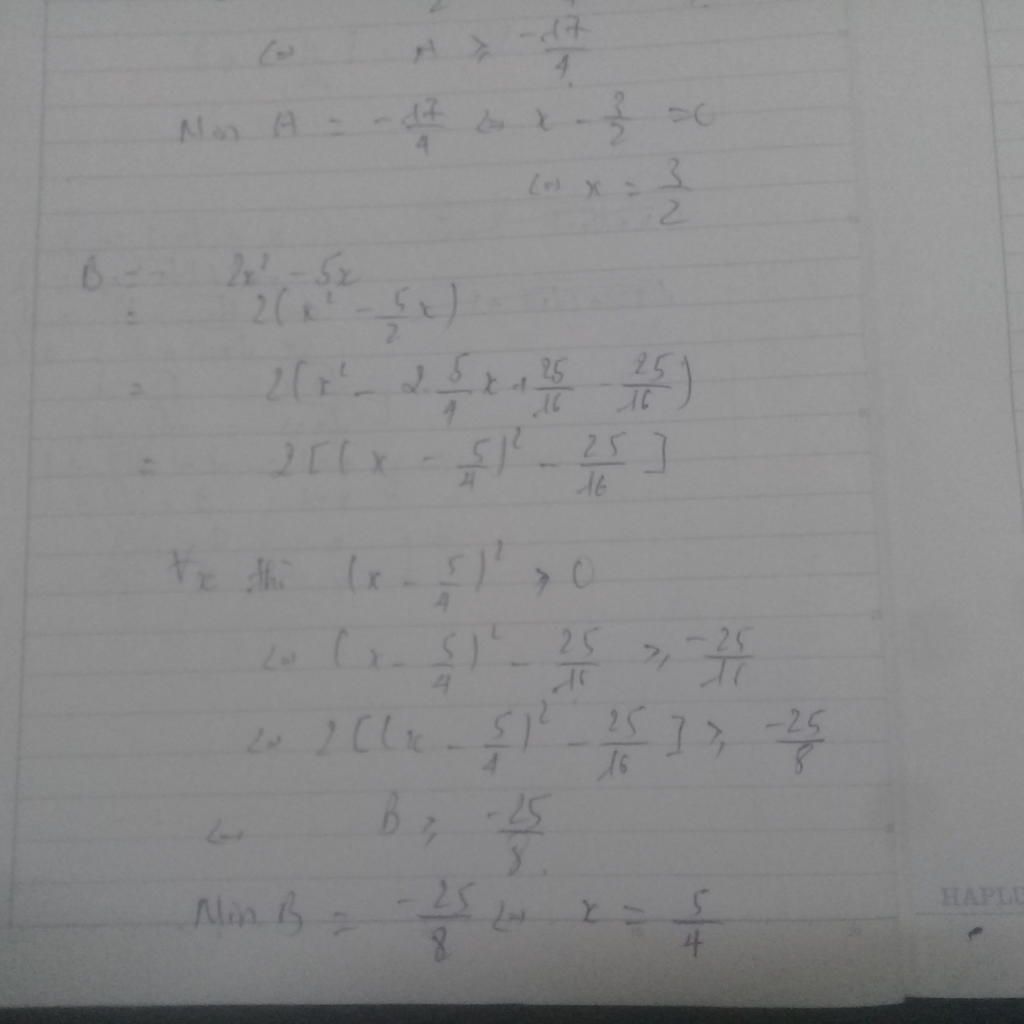 ⇔ A ≥ -17/4
Min A = -17/4 ⇔ x - 3/2 = 0
⇔ x = 3/2
B = 2x² - 5x
= 2(x² - 5/2 x)
= 2(x² - 2.5/4 x + 25/16 - 25/16)
= 2[(x - 5/4)² - 25/16]
∀x thì (x - 5/4)² ≥ 0
⇔ (x - 5/4)² - 25/16 ≥ -25/16
⇔ 2[(x - 5/4)² - 25/16] ≥ -25/8
⇔ B ≥ -25/8
Min B = -25/8 ⇔ x = 5/4